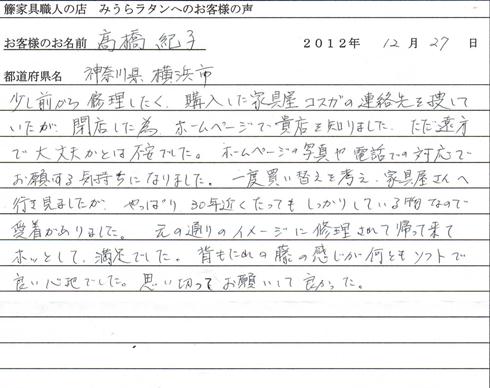 籐家具職人の店　みうらラタンへのお客様の声
お客様のお名前　高橋紀子　２０１２年　12月　27日
都道府県名　神奈川県横浜市
少し前から修理したく、購入した家具屋コスガの連絡先を捜して
いたが、閉店した為、ホームページで貴店を知りました。ただ遠方
で大丈夫かとは不安でした。ホームページの写真や電話での対応で
お願する気持ちになりました。一度買い替えを考え、家具屋さんへ
行き見ましたが、やっぱり30年近くたってもしっかりしている物なので
愛着がありました。元の通りのイメージに修理されて帰って来て
ホッとして、満足でした。背もたれの藤の感じが何ともソフトで
良い心地でした。思い切ってお願いして良かった。